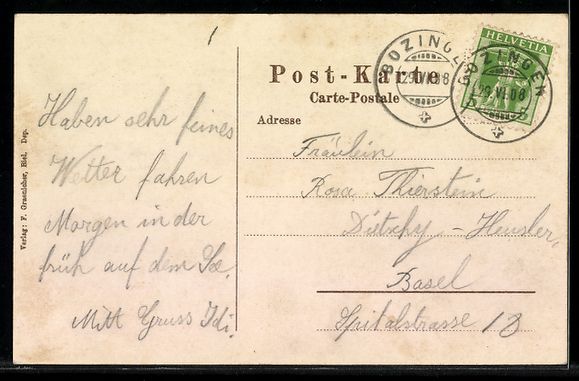 Post-Karte
Carte-Postale
Adresse
HELVETIA
BÖZINGEN
29.VI.08
BÖZINGEN
29.VI.08
Haben sehr feines
Wetter fahren
Morgen in der
früh auf dem See.
Mitt Gruss Idi.
Fräulein
Rosa Thierstein
Dietschy - Heusler,
Basel
Spitalstrasse 18
Verlag: F. Graenicher, Biel. Dep.